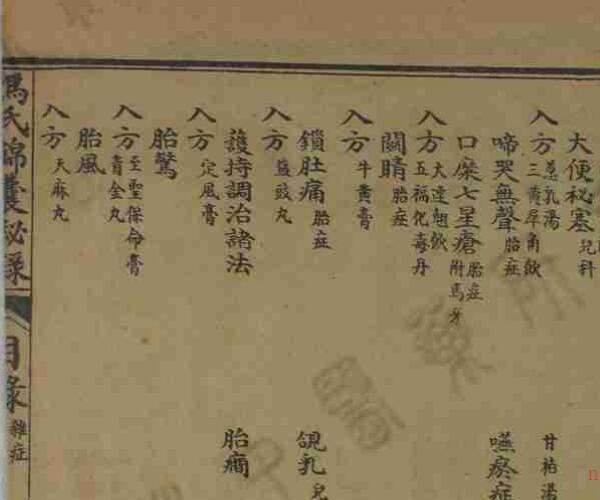 大便秘塞 兒科
入方 葱乳湯 三黃犀角飲 甘桔湯
啼哭無聲 胎症
口糜七星瘡 胎症 附馬牙
入方 大連翹飲 五福化毒丹
關睛 胎症
入方 牛黃膏
鎖肚痛 胎症
入方 鹽豉丸
護持調治諸法 胎癇
入方 定風膏
胎驚
入方 至聖保命膏 青金丸
胎風
入方 天麻丸
馮氏錦囊秘錄
目錄 雜症